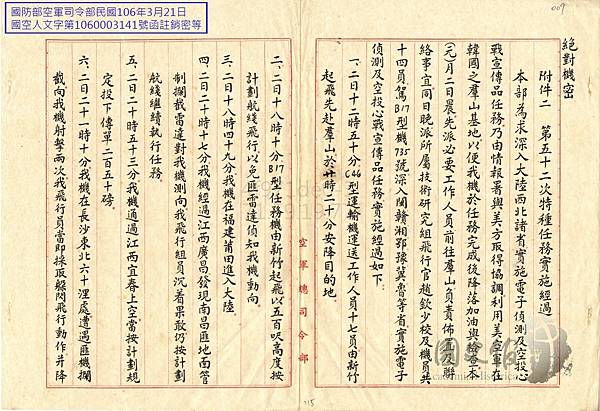 國防部空軍司令部民國106年3月21日
國空人文字第1060003141號函註銷密等
009
絕對機密
附件二　第五十二次特種任務實施經過
本部為求深入大陸西北諸省實施電子偵測及空投心
戰宣傳品任務乃由情報署與美方取得協調利用美空軍在
韓國之羣山基地以便我機於任務完成後降落加油與檢查本
(元)月二日晨先派必要工作人員前往羣山負責佈置及聯
絡事宜同日晚派所屬技術研究組飛行官趙欽少校及機員共
十四員駕B17型機735號深入閩贛湘鄂豫冀魯等省實施電子
偵測及空投心戰宣傳品任務實施經過如下:
一、二日十一時五十分C46型運輸機運送工作人員十七員由新竹
起飛先赴羣山於廿時二十分安降目的地
空軍總司令部
二、二日十八時十分B17型任務機由新竹起飛以五百呎高度按
計劃航綫飛行以免匪雷達偵知我機動向
三、二日十八時四十九分我機在福建莆田進入大陸
四、二日二十時十七分我機經過江西廣昌發現南昌匪地面管
制攔截雷達對我機測向我飛行組員沉着果敢仍按計劃
航綫繼續執行任務
五、二日二十時五十三分我機通過江西宜春上空當按計劃規
定投下傳單二百五十磅
六、二日二十一時十分我機在長沙東北六十浬處遭遇匪機攔
截向我機射擊兩次我飛行員當即採取躲閃飛行動作并降
115
國史館
Academia Historica